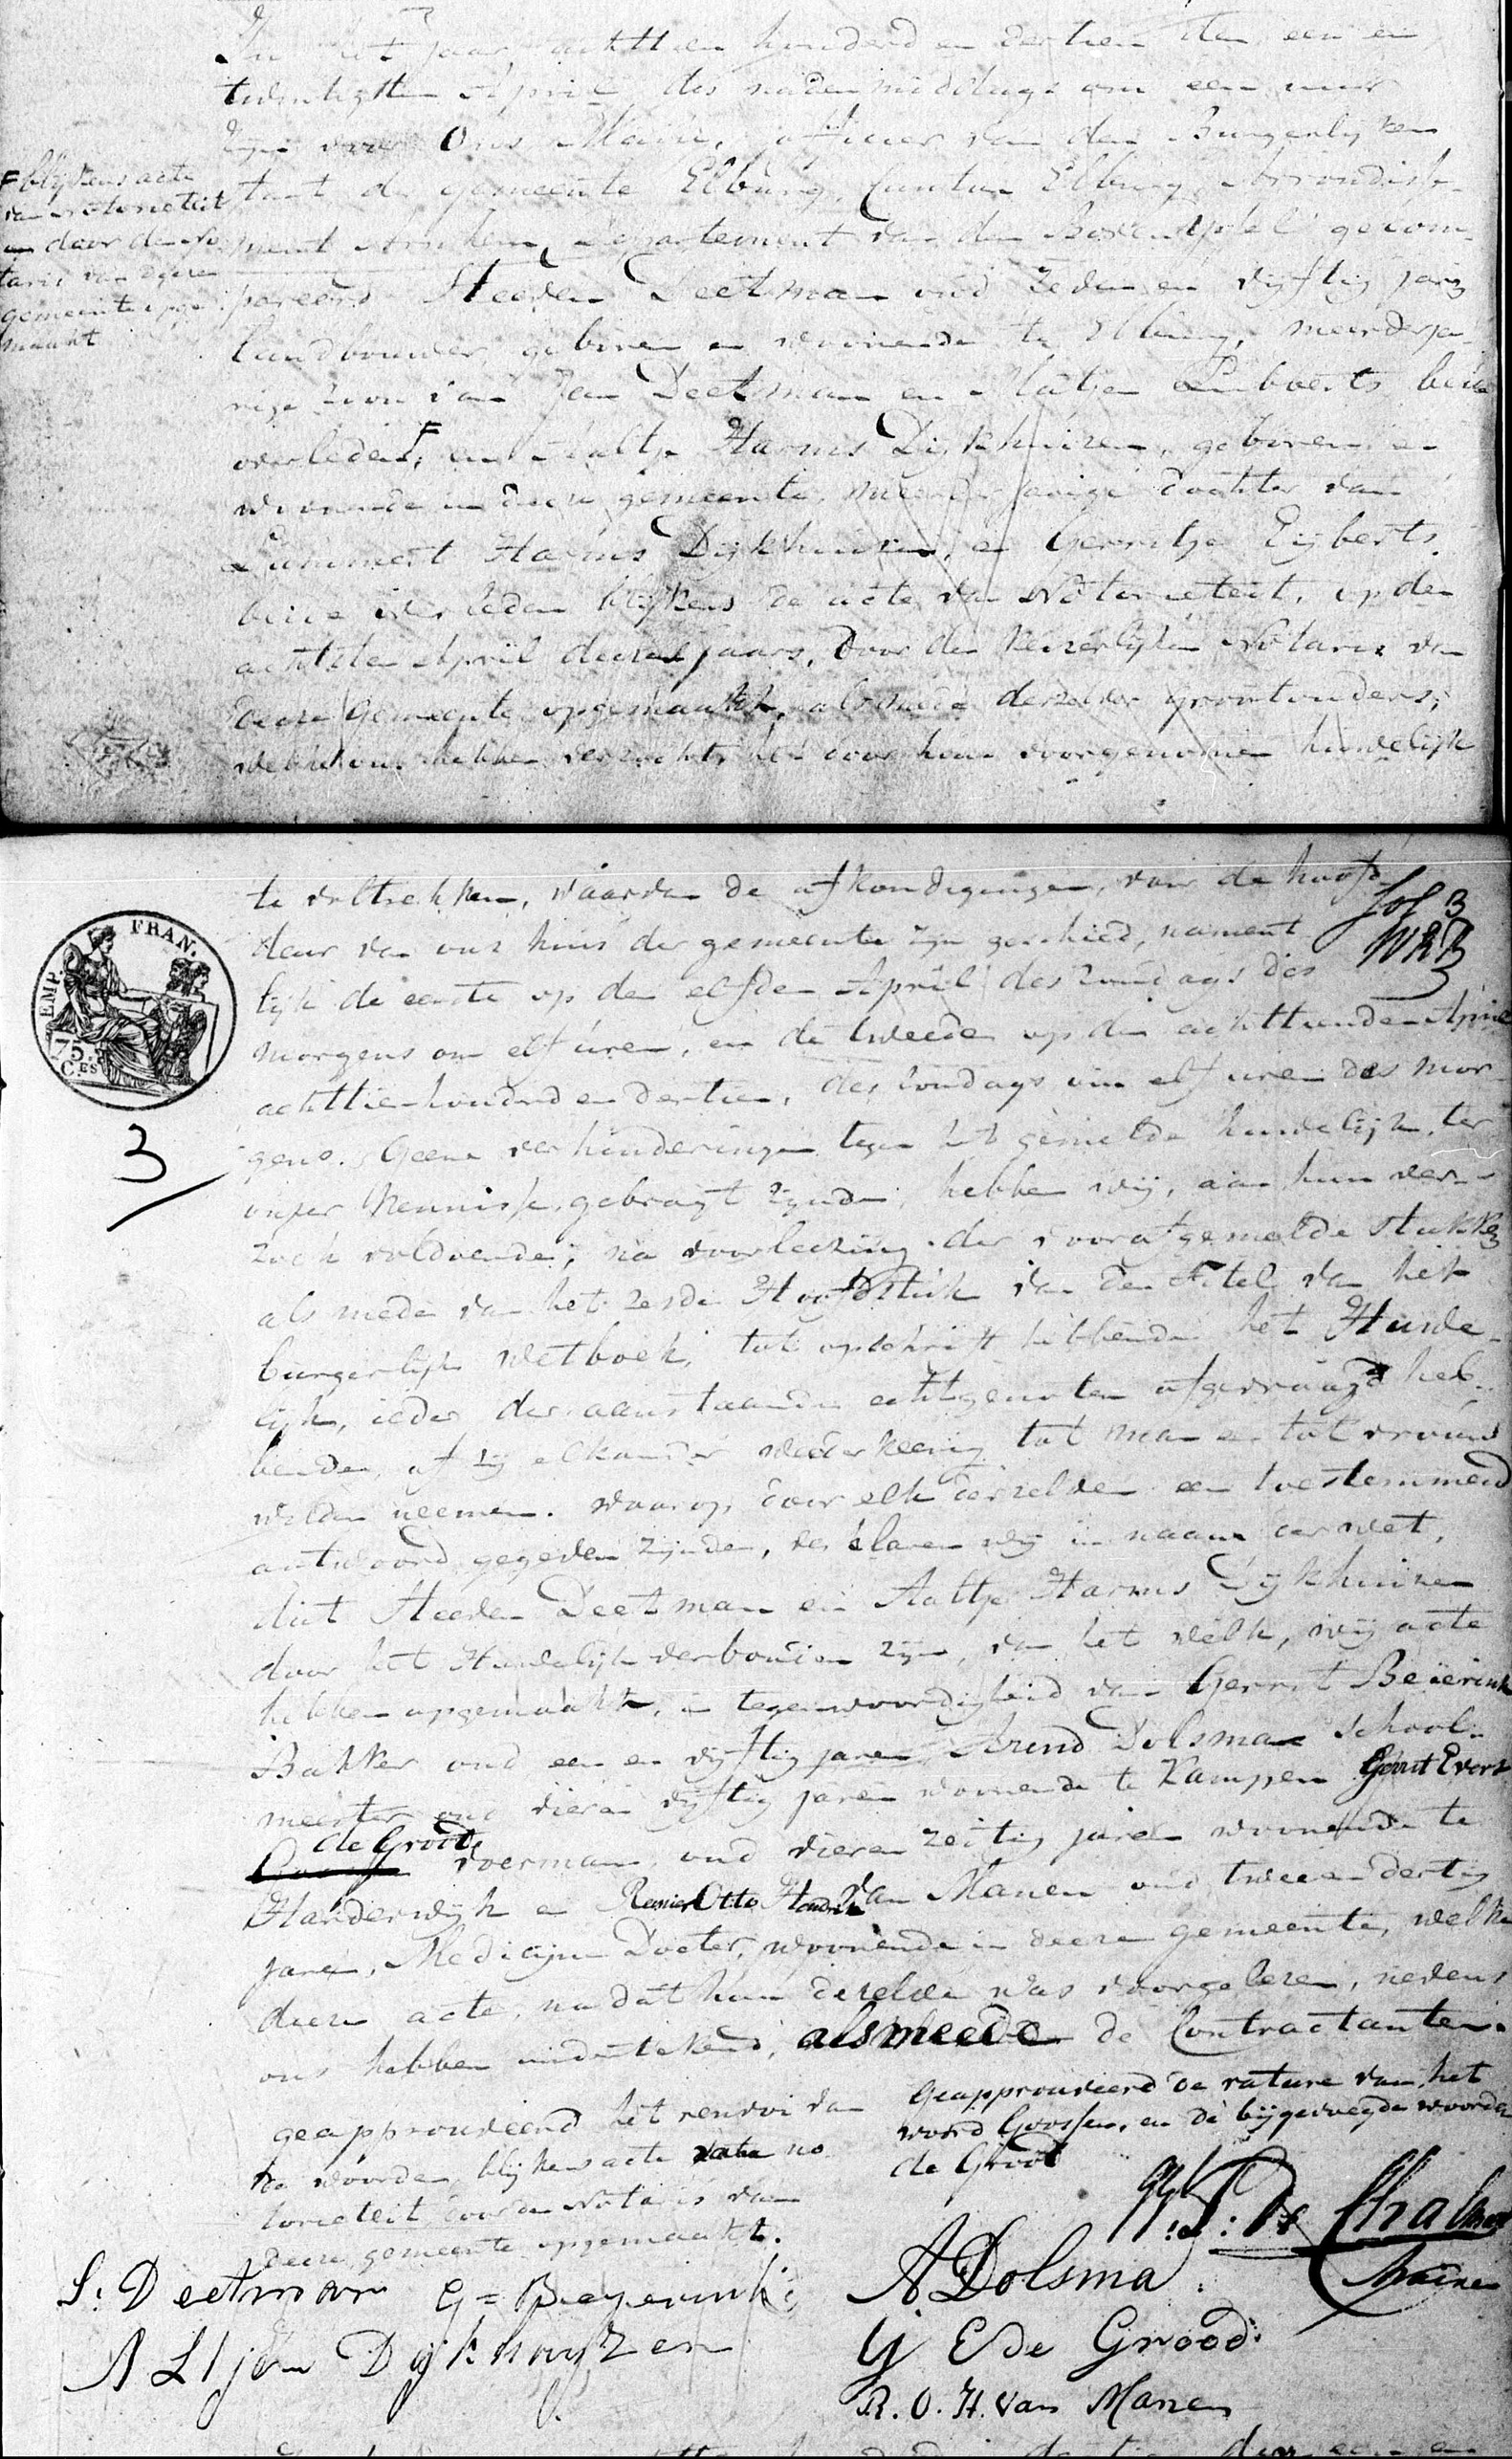 In het Jaar achttien honderd en dertien den een en
twintigsten April, des nademiddags om een uur
zijn voor Ons Maire, officier van den Burgerlijken
staat der gemeente Elburg, Canton Elburg Arrondisse-
ment Arnhem, Departement van den Boven Yssel gecom-
pareerd Steeven Deetman oud zeven en vijftig jaren
landbouwer, geboren en woonende te Elburg, meerderja-
rige zoon van Jan Deetman en Lubberts beide
overleden F, en Aaltje Harms Dijkhuizen, geboren en
woonende in deeze gemeente, meerderjarige dochter van
Lummert Harms Dijkhuizen, en Gerritje Eijberts,
beide overleden blijkens de acte van Notorieteit, op den
achtsten April deezes jaars, door den Keizerlijken Notaris van
deeze Gemeente opgemaakt, alsmede derzelver grootouders;
welke ons hebben verzocht, het door hun voorgenomen huwelijk
F blijkens acte
van notorieteit
door de No
taris van deze
gemeente opge
maakt
te voltrekken, waarvan de afkondigingen, voor de hoofd
deur van ons huis der gemeente zijn geschied, nament
lijk de eerste op den elfden April des zondags des
morgens om elf uren, en de tweede op den achttienden April
achttienhonderd en dertien, des zondags om elf uren des mor-
gens. Geene verhinderingen tegen het gemelde huwelijk ter
onzer kennisse gebragt zijnde, hebben wij, aan hun ver-
zoek voldoende, na voorleezing der voorafgemelde stukken
als mede van het zesde Hoofdstuk van den Titel van het
burgerlijk wetboek, tot opschrift hebbende het Huwe-
lijk, ieder der aanstaande echtgenoten afgevraagd heb-
bende, of zij elkander wederkeerig tot man en tot vrouw
wilden neemen. waarop, door elk derzelven een toestemmend
antwoord gegeven zijnde, verklaren wij in naam der wet,
dat Steeven Deetman en Aaltje Harms Dijkhuizen
door het Huwelijk verbonden zijn, van het welk, wij acte
hebben opgemaakt, in tegenwoordigheid van Gerrit Beierink
Bakker oud een en vijftig jaren, Arend Dolsma School-
meester oud vier en vijftig jaren woonende te Kampen Gerrit Evert
de Groot
voerman, oud vier en zestig jaren woonende te
Harderwijk en Reinier Otto Hendrik van Manen oud twee en dertig
jaren, Medicijn Docter, woonende in deeze gemeente, welke
deeze acte, na dat hun dezelve was voorgelezen, nevens
ons hebben ondertekend, alsmeede de Contractanten.
Fol 3
EMP. FRAN.
75. C.ES
3
geapprouveerd het renvoi van
de woorden blijkens acte van no
torieteit door den Notaris van
deeze gemeente opgemaakt.
Geapprouveerd de rature van het
woord Goossen, en de bijgevoegde woorden
de Groot
Maire
S: Deetman G = Beyerink
A Dolsma
Altjen Dijkhuyzen
G E de Grood
R. O. H. van Manen